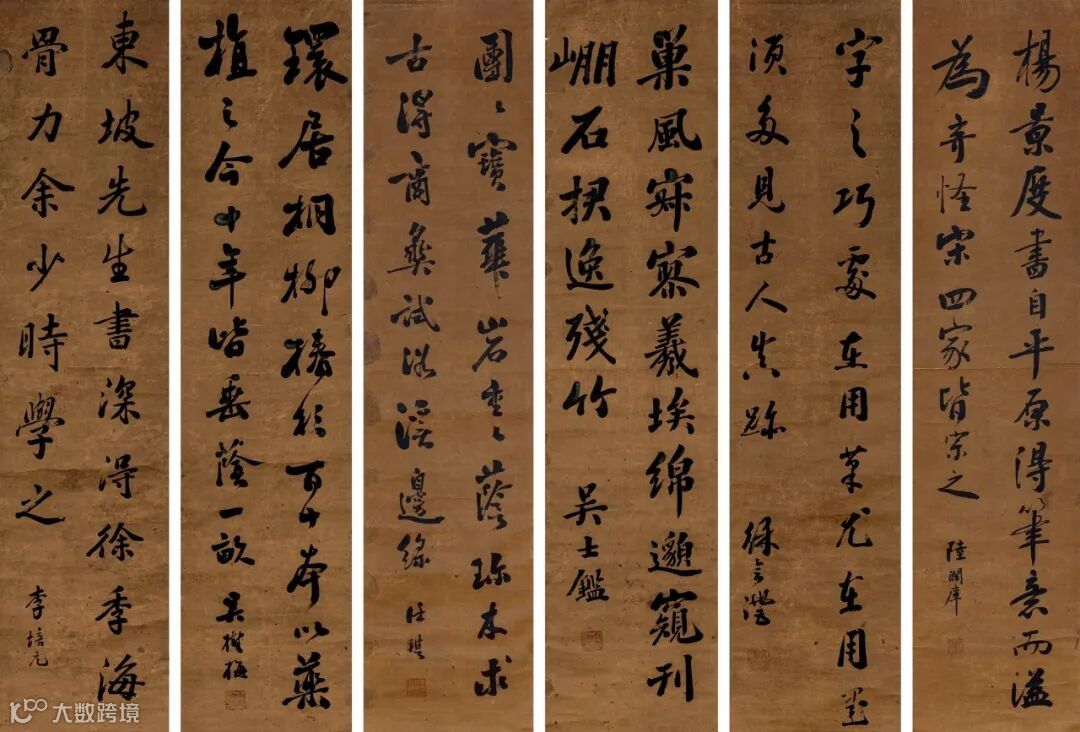 楊景度書自平原得筆意而溢
為奇怪宋四家皆宗之
陸潤庠
字之巧處在用筆尤在用墨
須多見古人真跡
徐會灃
巢風寂寥羲埃綿邈窺刊
崩石捃逸殘竹
吳士鑑
團〻寶華岩重〻蔭珎木求
古得商彝試浴溪邊綠
環居桐柳椿杉百十本以藥
植之今中年皆垂蔭一畝
吳樹梅
東坡先生書深得徐季海
骨力余少時學之
李培元
大数跨境